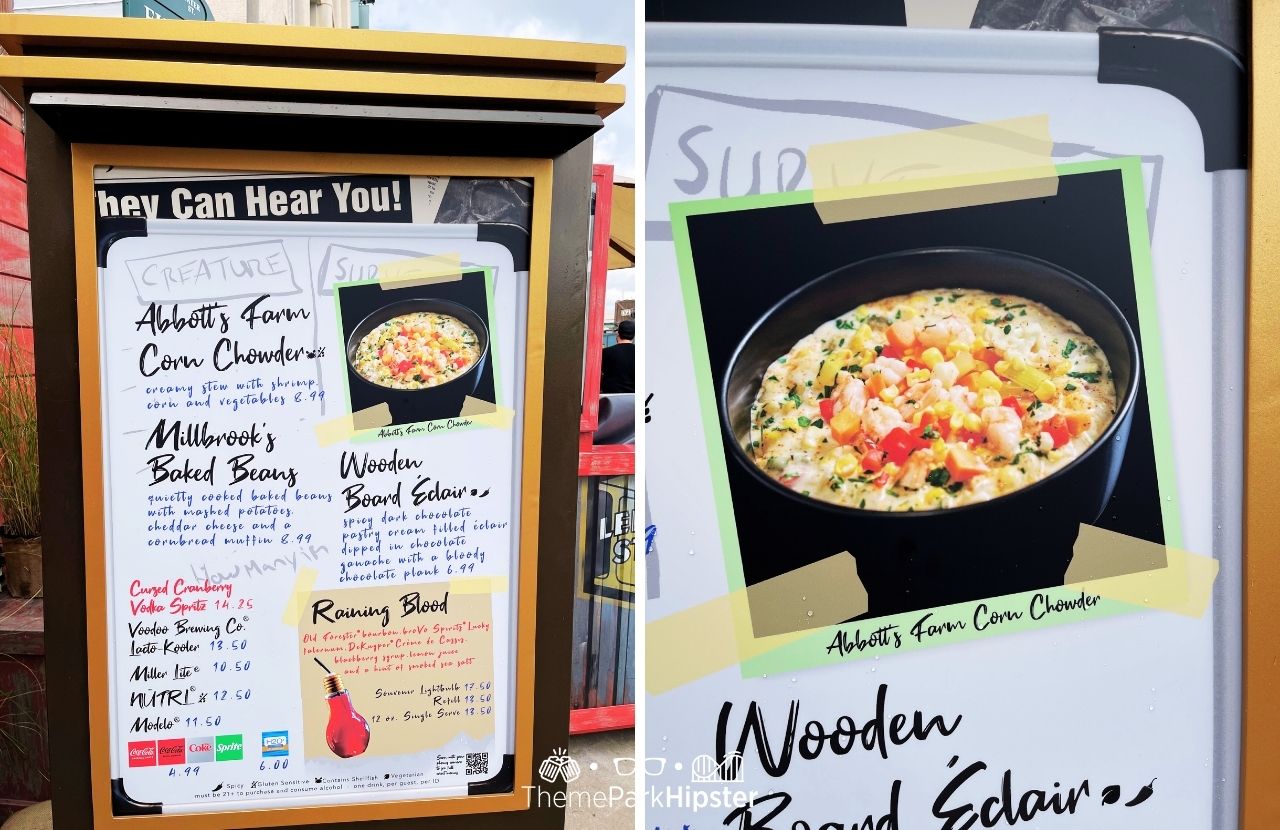 They Can Hear You!
CREATURE
SURV
Abbott's Farm
Corn Chowder
creamy stew with shrimp,
corn and vegetables 8.99
Abbott's Farm Corn Chowder
Millbrook's
Baked Beans
quietly cooked baked beans
with mashed potatoes,
cheddar cheese and a
cornbread muffin 8.99
Wooden
Board Éclair
spicy dark chocolate
pastry cream filled éclair
dipped in chocolate
ganache with a bloody
chocolate plank 6.99
How Many in
Cursed Cranberry
Vodka Spritz 14.25
Voodoo Brewing Co.®
Lacto-Kooler 13.50
Miller Lite® 10.50
NÜTRL® 12.50
Modelo® 11.50
Coca-Cola Coca-Cola Coke Sprite
4.99
H2O
6.00
Raining Blood
Old Forester® bourbon, broVo Spirits® Lucky
Falernum, DeKuyper® Crème de Cassis,
blackberry syrup, lemon juice
and a hint of smoked sea salt
Souvenir Lightbulb 17.50
Refill 13.50
12 oz. Single Serve 13.50
Spicy Gluten Sensitive Contains Shellfish Vegetarian
must be 21+ to purchase and consume alcohol - one drink, per guest, per ID
SURV
Abbott's Farm Corn Chowder
Wooden
Board Éclair
ThemeParkHipster